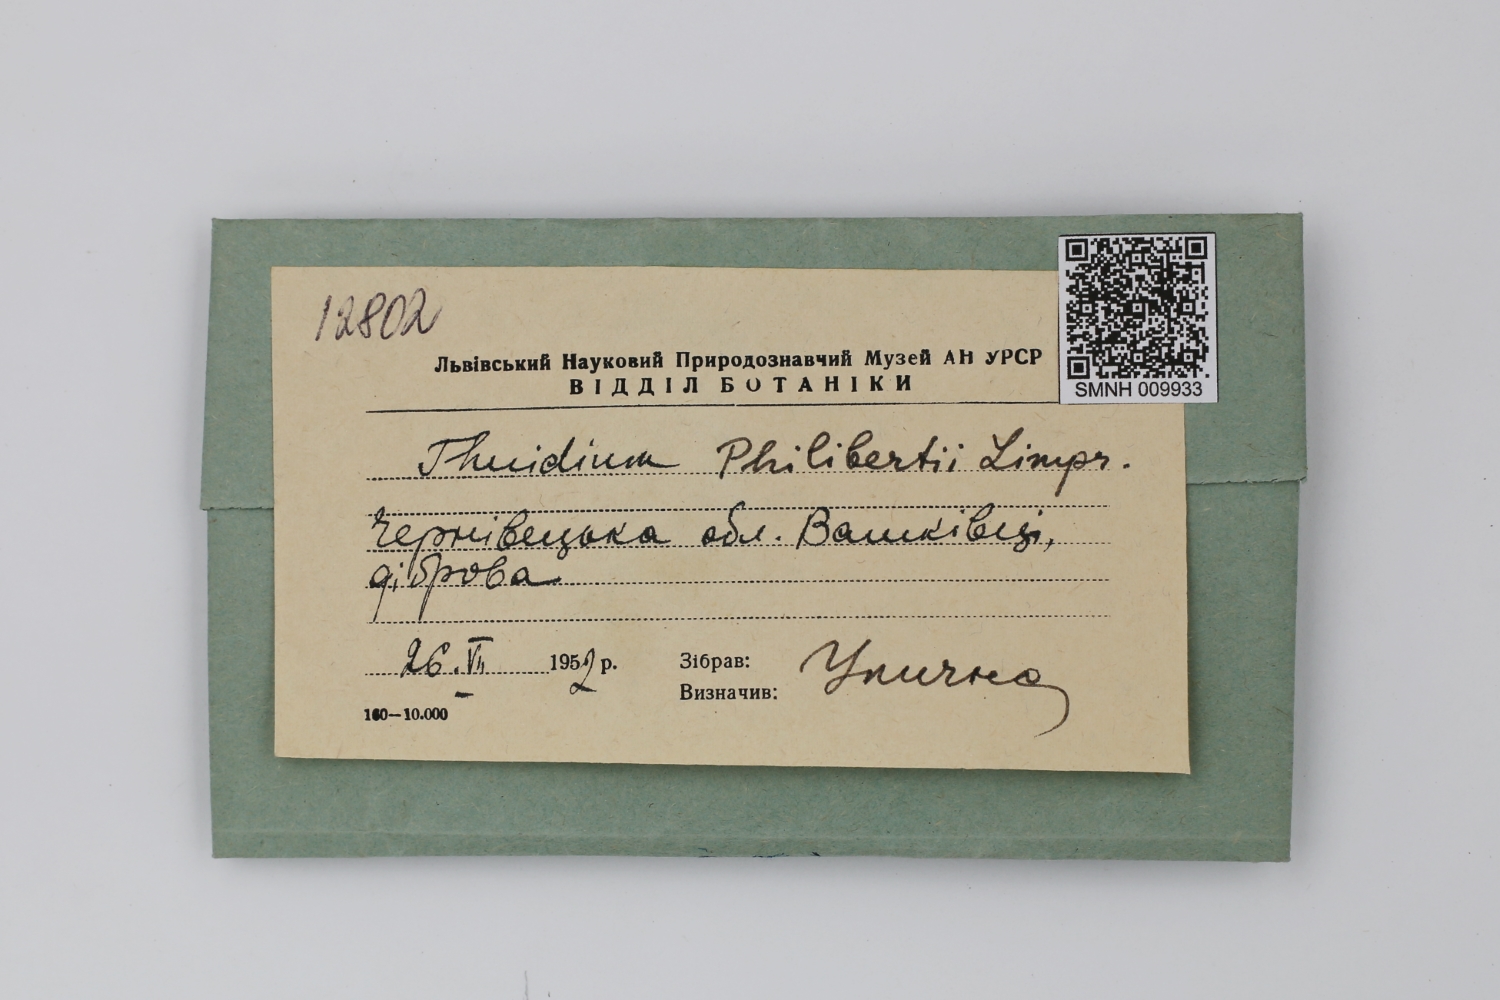 12802
Львівський Науковий Природознавчий Музей АН УРСР
ВІДДІЛ БОТАНІКИ
SMNH 009933
Thuidium Philibertii Limpr.
Чернівецька обл. Вашківці,
діброва
26.VII 1952 р.
Зібрав: Улична
Визначив:
160—10.000